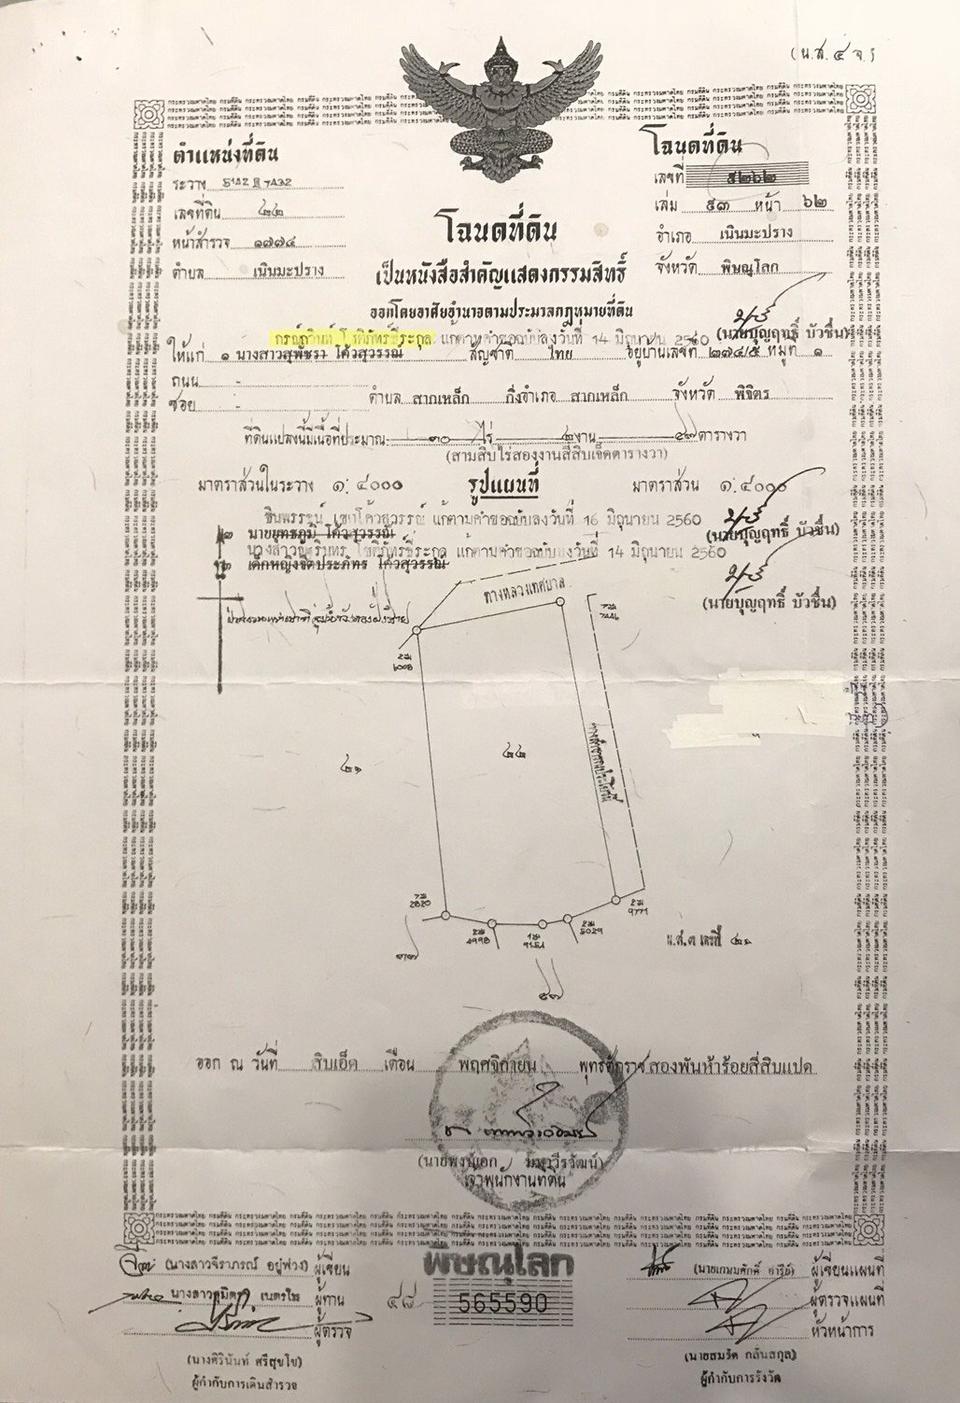 (น.ส. ๔ จ)
ตำแหน่งที่ดิน
ระวาง 5142 III 7432
เลขที่ดิน ๔๔
หน้าสำรวจ ๑๗๗๔
ตำบล เนินมะปราง
โฉนดที่ดิน
เลขที่ ๕๒๖๒
เล่ม ๕๓ หน้า ๖๒
อำเภอ เนินมะปราง
จังหวัด พิษณุโลก
โฉนดที่ดิน
เป็นหนังสือสำคัญแสดงกรรมสิทธิ์
ออกโดยอาศัยอำนาจตามประมวลกฎหมายที่ดิน
แก้ตามคำขอฉบับลงวันที่ 14 มิถุนายน 2560 (นายบุญฤทธิ์ บัวชื่น)
ให้แก่ ๑ นางสาวสุพัชรา โค้วสุวรรณ์ สัญชาติ ไทย อยู่บ้านเลขที่ ๒๗๔/๕ หมู่ที่ ๑
ถนน -
ซอย - ตำบล สากเหล็ก กิ่งอำเภอ สากเหล็ก จังหวัด พิจิตร
ที่ดินแปลงนี้มีเนื้อที่ประมาณ ๓๐ ไร่ ๒ งาน ๔๗ ตารางวา
(สามสิบไร่สองงานสี่สิบเจ็ดตารางวา)
มาตราส่วนในระวาง ๑:๔๐๐๐ รูปแผนที่ มาตราส่วน ๑:๔๐๐๐
แก้ตามคำขอฉบับลงวันที่ 16 มิถุนายน 2560
นายยุทธภูมิ โค้วสุวรรณ์ (นายบุญฤทธิ์ บัวชื่น)
แก้ตามคำขอฉบับลงวันที่ 14 มิถุนายน 2560
เด็กหญิงจิตประภัทร โค้วสุวรรณ์
(นายบุญฤทธิ์ บัวชื่น)
ทางหลวงเทศบาล
ทางสาธารณประโยชน์
๔๑
๔๔
7สี
2820
2สี
4998
1สี
9151
2สี
5029
2สี
9771
น.ส.๓ เลขที่ ๔๑
๓๗
๕๗
ออก ณ วันที่ สิบเอ็ด เดือน พฤศจิกายน พุทธศักราช สองพันห้าร้อยสี่สิบแปด
(นายพงษ์เอก มหาวีรวัฒน์)
เจ้าพนักงานที่ดิน
(นางสาวจีราภรณ์ อยู่พ่วง) ผู้เขียน
ผู้ทาน
ผู้ตรวจ
(นางศิรินันท์ ศรีสุขโข)
ผู้กำกับการเดินสำรวจ
พิษณุโลก
๔๘ 565590
ผู้เขียนแผนที่
ผู้ตรวจแผนที่
หัวหน้าการ
(นายสมรัด กลั่นสกุล)
ผู้กำกับการรังวัด